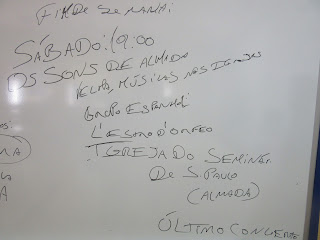 FIM DE SEMANA:
SÁBADO: 19:00
OS SONS DE ALMADA
VELHA, MÚSICAS NAS IGREJAS
GRUPO ESPANHOL
L'ESTRO D'ORFEO
IGREJA DO SEMINÁRIO
DE S PAULO
(ALMADA)
ÚLTIMO CONCERTO